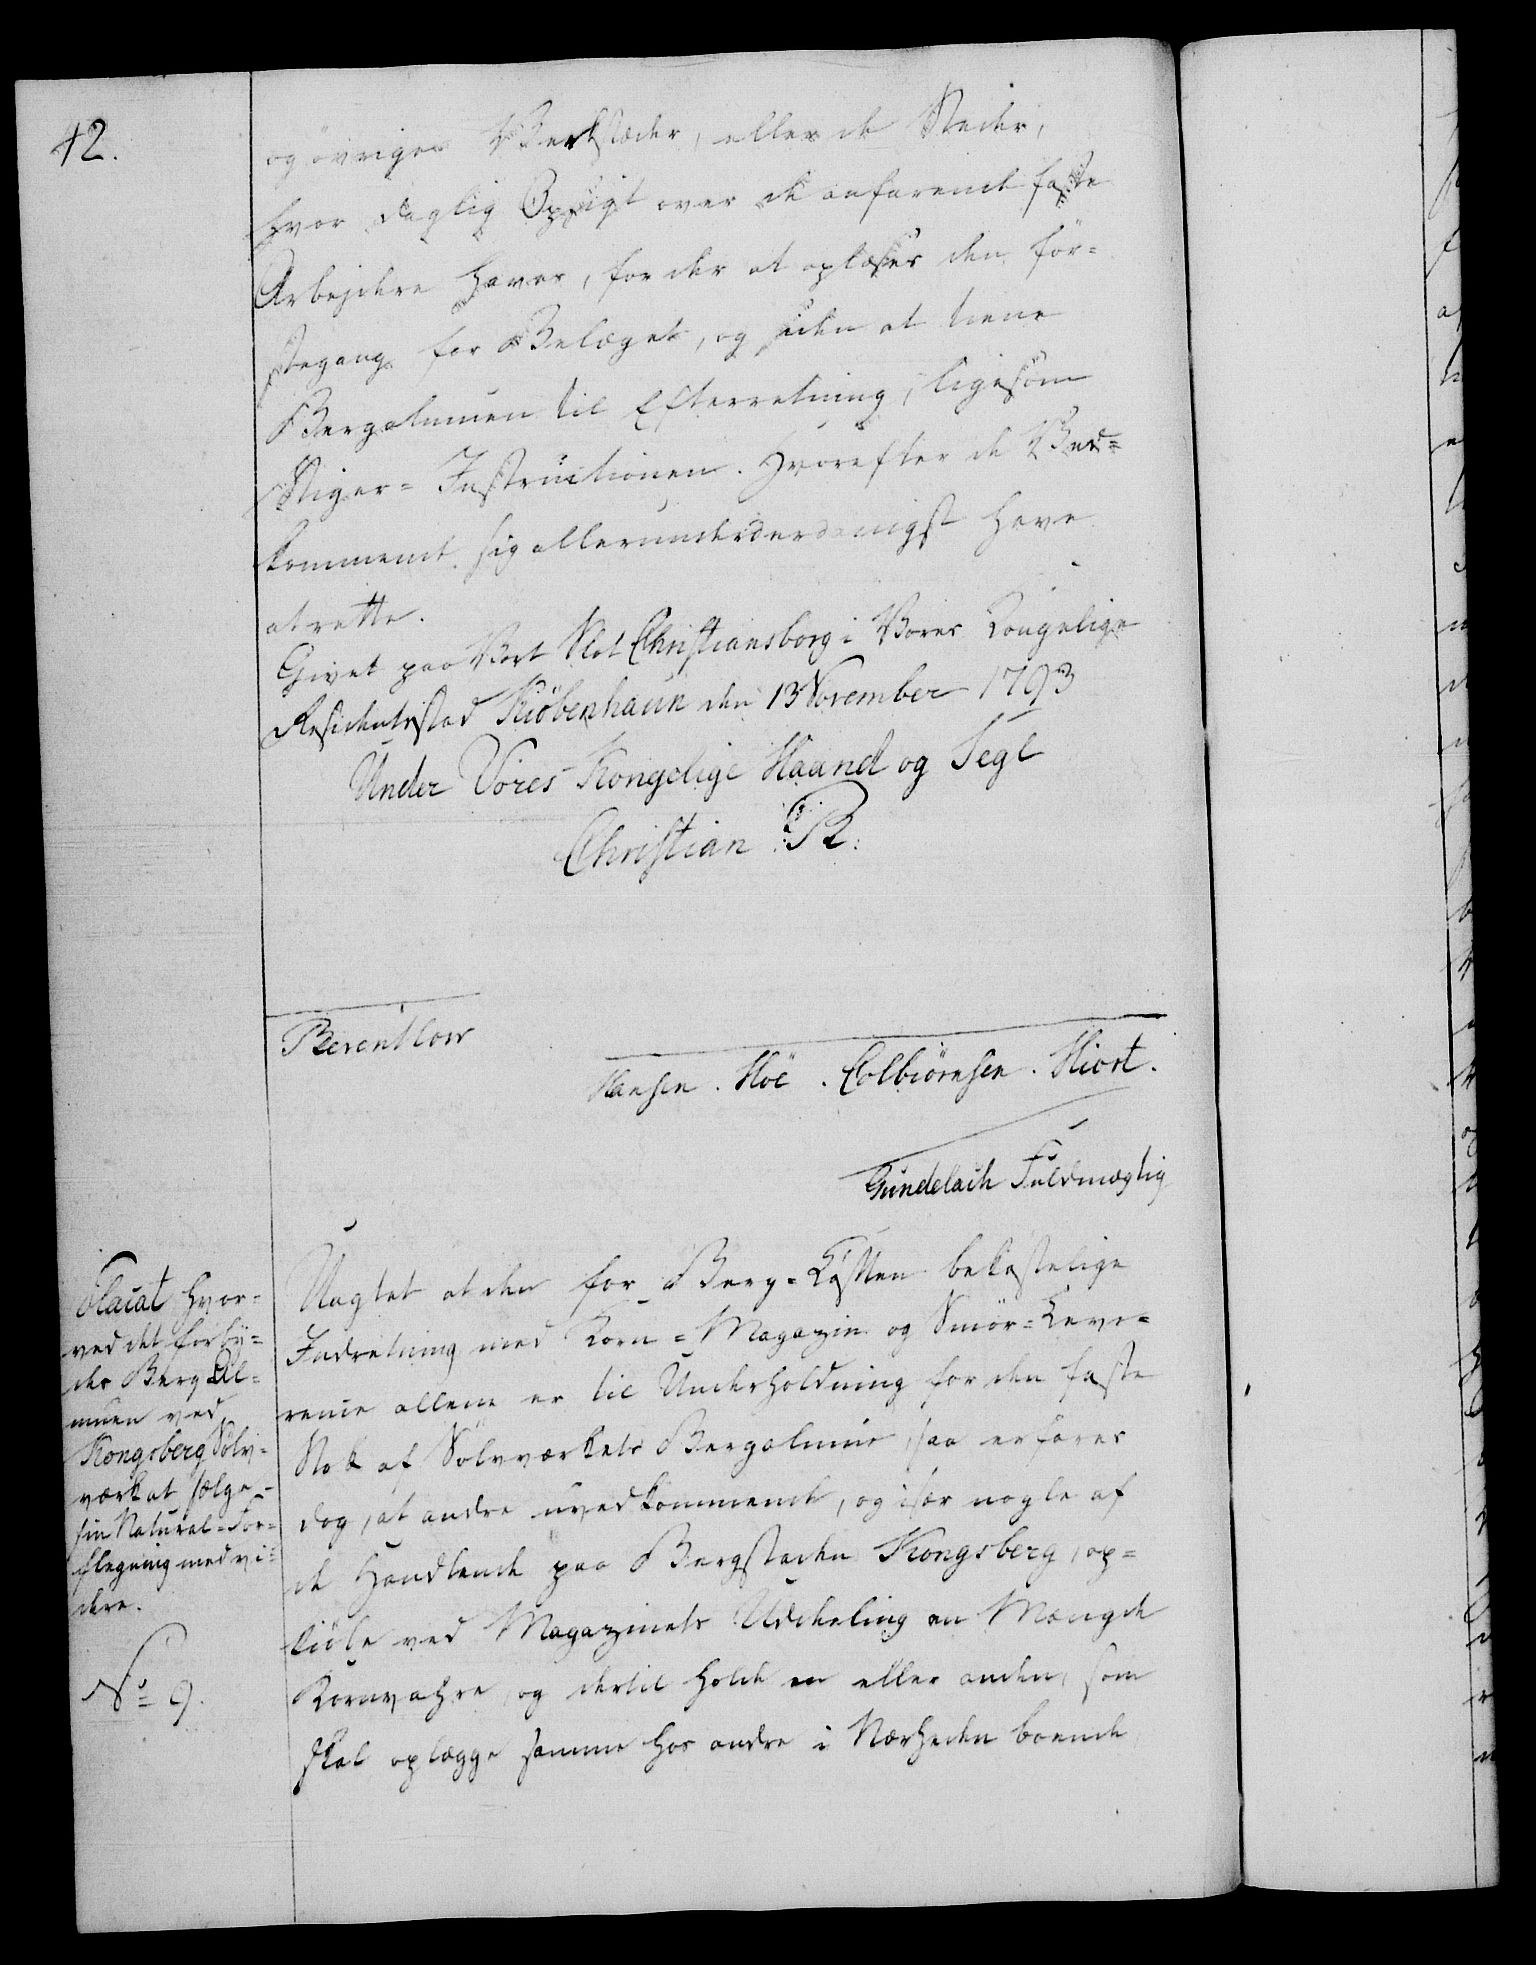 42.
og övriger Verkstæder, eller de Steder,
hvor daglig Opsigt over de anfarende faste
Arbejdere haves, for der at oplæses den för-
stegang for Belæget, og siden at tiene
Bergalmuen til Efterretning, ligesom
Stiger- Instructionen. Hvorefter de Ved-
kommende sig allerunderdanigst have
at rette.
Givet paa Vort Slot Christiansborg i Vores Kongelige
Residentsstad Kiöbenhaun den 13 November 1793
Under Vores Kongelige Haand og Segl
Christian R.
Reventlow
Hansen. Höe. Colbiørnsen. Hiort.
Gundelach Fuldmægtig
Placat hvor-
ved det forby-
des Berg Al-
muen ved
Kongsberg Sölv-
værk at sælge
sin Natural-For-
flegning med vi-
dere.
No 9.
Uagtet at den for Berg-Casten bekostelige
Indretning med Korn-Magazin og Smör-Leve-
rence allene er til Underholdning for den faste
Stok af Sölvværkets Bergalmue, saa erfares
dog, at andre uvedkommende, og især nogle af
de Handlende paa Bergstaden Kongsberg, op-
kiöbe ved Magazinets Uddeling en Mængde
Kornvahre, og dertil holde en eller anden, som
skal oplægge samme hos andre i Nærheden boende